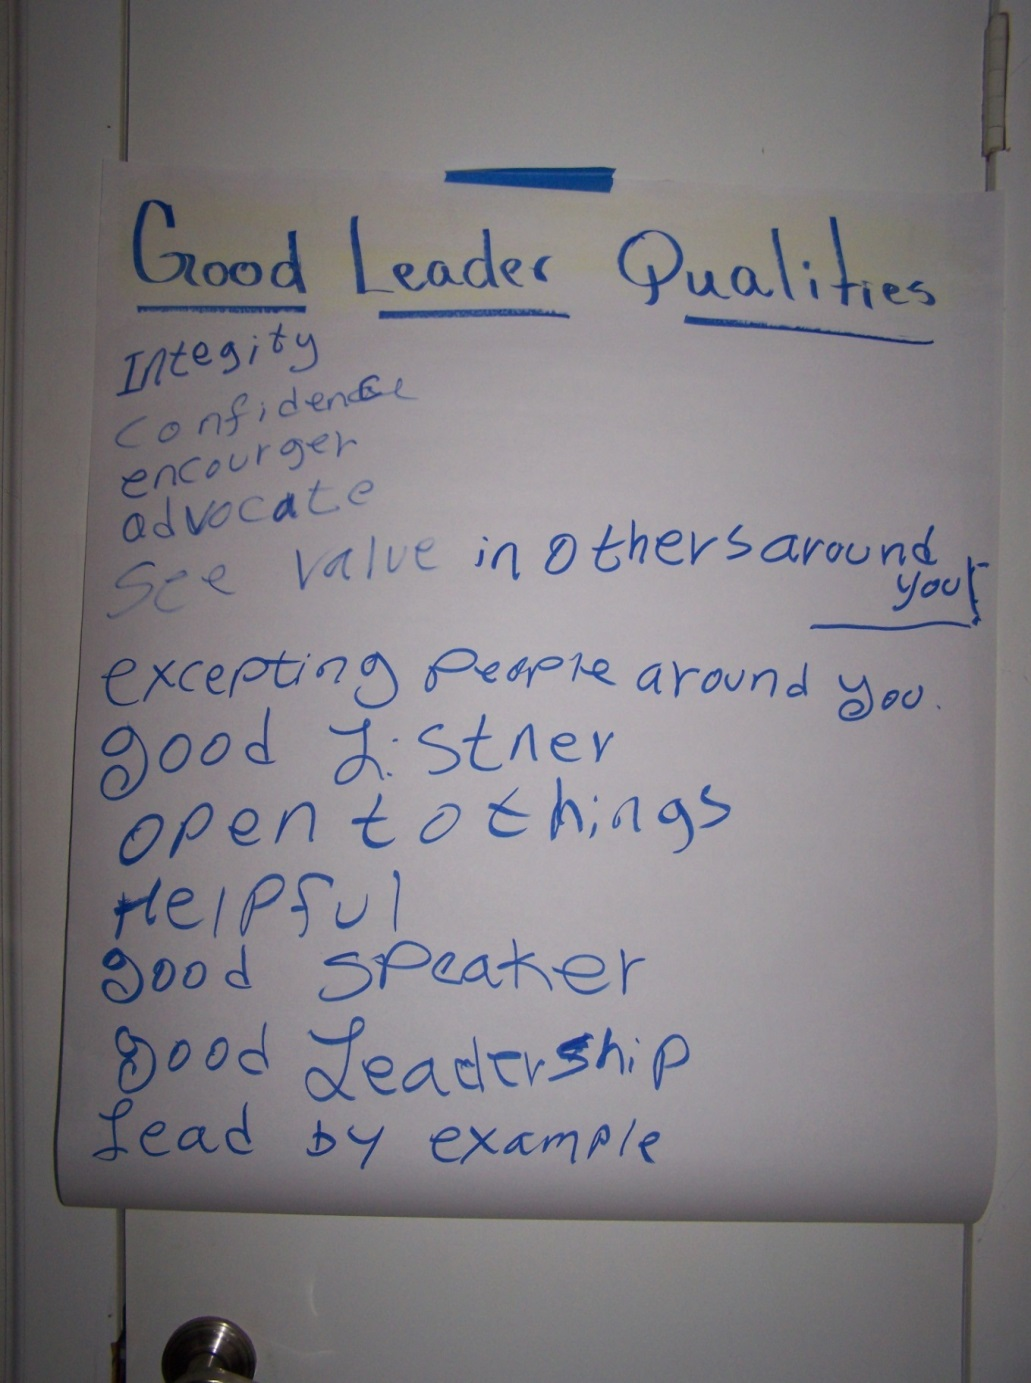 Good Leader Qualities
Integity
Confidence
encourger
advocate
See value in others around
you
excepting People around you.
good Listner
open to things
Helpful
good speaker
good Leadership
Lead by example